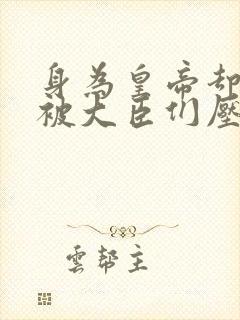 身為皇帝卻
被大臣們壓
雲幫主